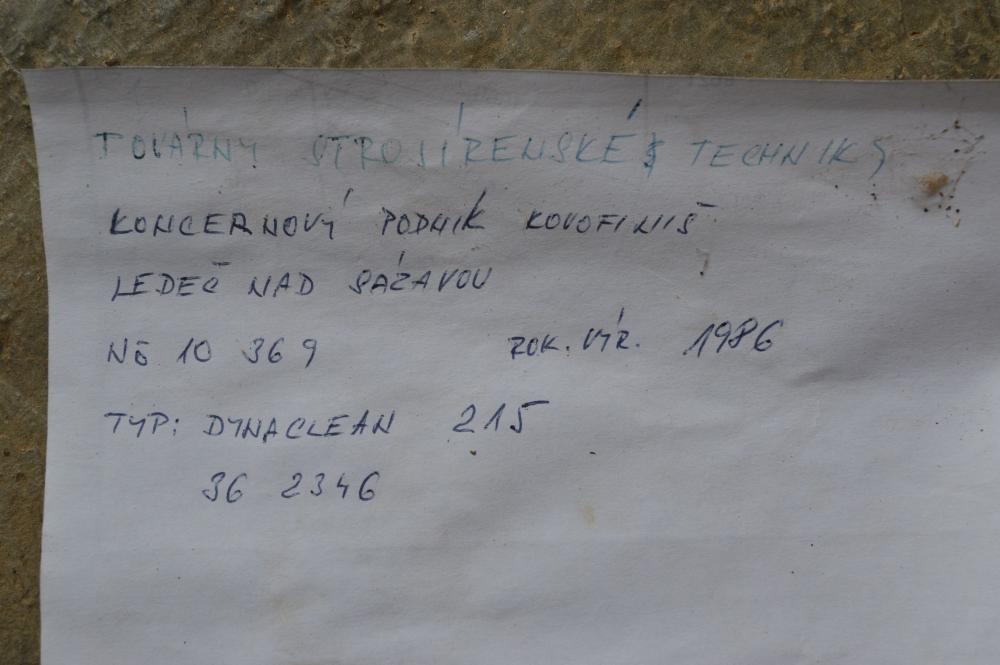 TOVÁRNY STROJÍRENSKÉ TECHNIKY
KONCERNOVÝ PODNÍK KOVOFINIŠ
LEDEČ NAD SÁZAVOU
No 10 369 ROK. VÝR. 1986
TYP: DYNACLEAN 215
36 2346